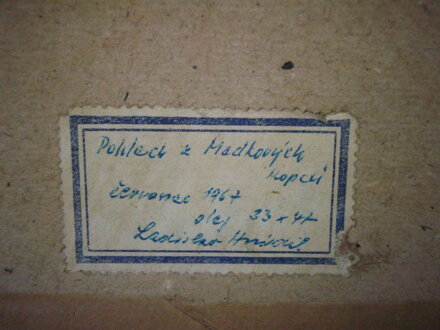 Pohled z Medkových
kopců
červenec 1967
olej 33 x 47
Ladislav